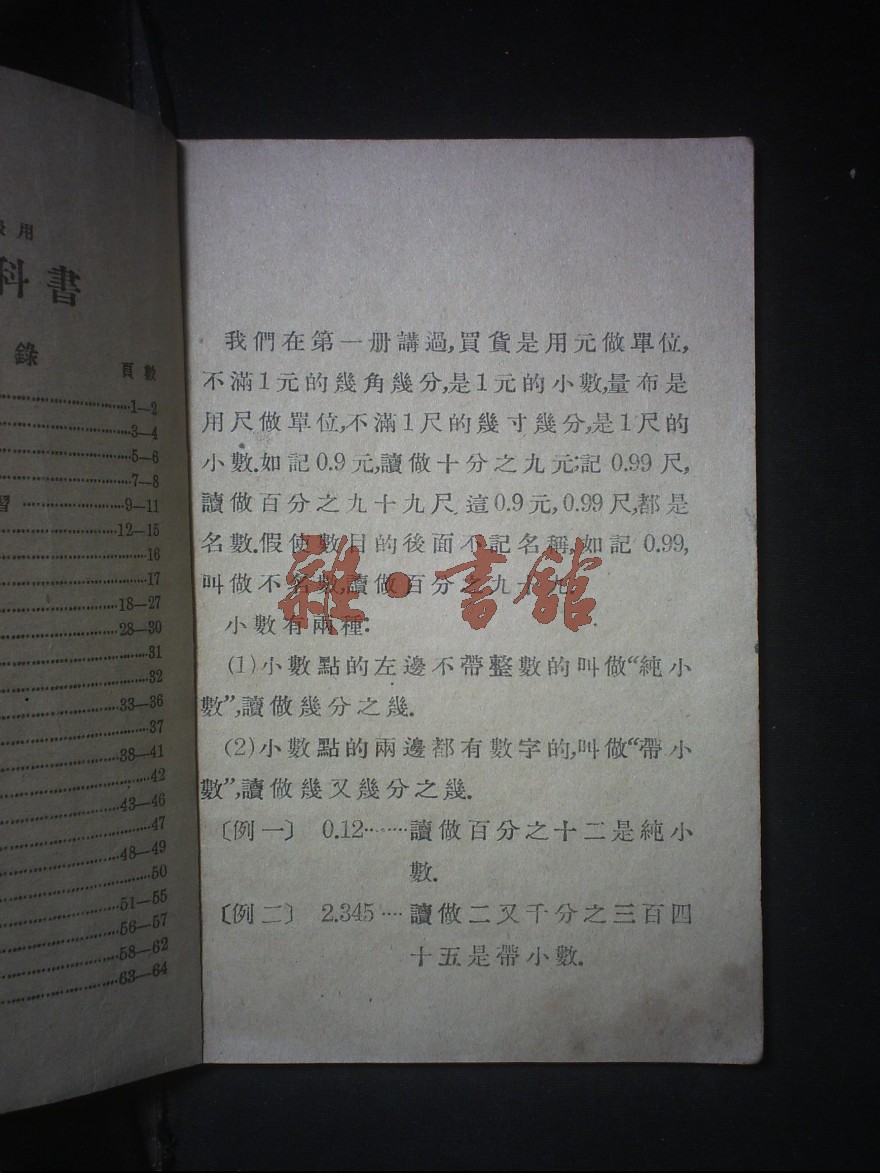 用
科書
錄
頁數
1—2
3—4
5—6
7—8
習 9—11
12—15
16
17
18—27
28—30
31
32
33—36
37
38—41
42
43—46
47
48—49
50
51—55
56—57
58—62
63—64
我們在第一册講過,買貨是用元做單位,
不滿1元的幾角幾分,是1元的小數,量布是
用尺做單位,不滿1尺的幾寸幾分,是1尺的
小數.如記0.9元,讀做十分之九元;記0.99尺,
讀做百分之九十九尺.這0.9元,0.99尺,都是
名數.假使數目的後面不記名稱,如記0.99,
叫做不名數,讀做百分之九十九.
雜·書館
小數有兩種:
(1)小數點的左邊不帶整數的叫做“純小
數”,讀做幾分之幾.
(2)小數點的兩邊都有數字的,叫做“帶小
數”,讀做幾又幾分之幾.
〔例一〕 0.12……讀做百分之十二是純小
數.
〔例二〕 2.345…讀做二又千分之三百四
十五是帶小數.